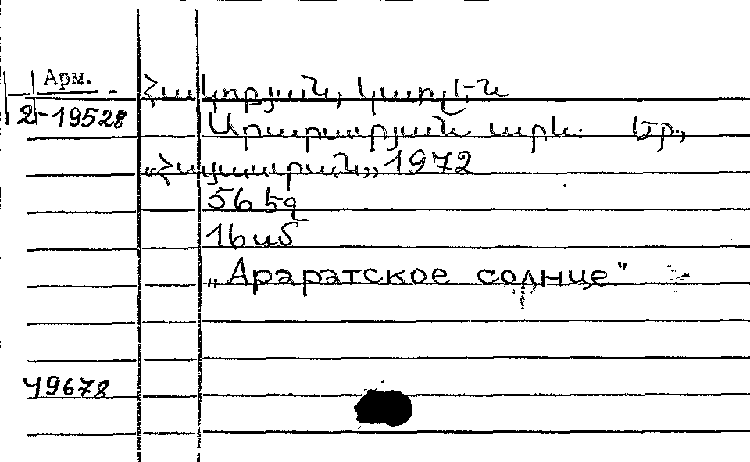 Арм.
2-19528
Հակոբյան, Կառլեն
Արարատյան արև. Եր.,
«Հայաստան», 1972
56 եգ
16 սմ
„Араратское солнце"
49678